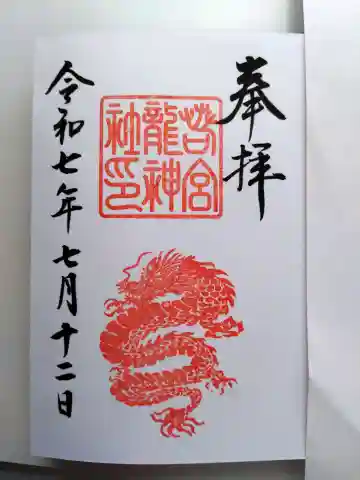 奉拝
宮
龍神
社印
令和七年七月十二日